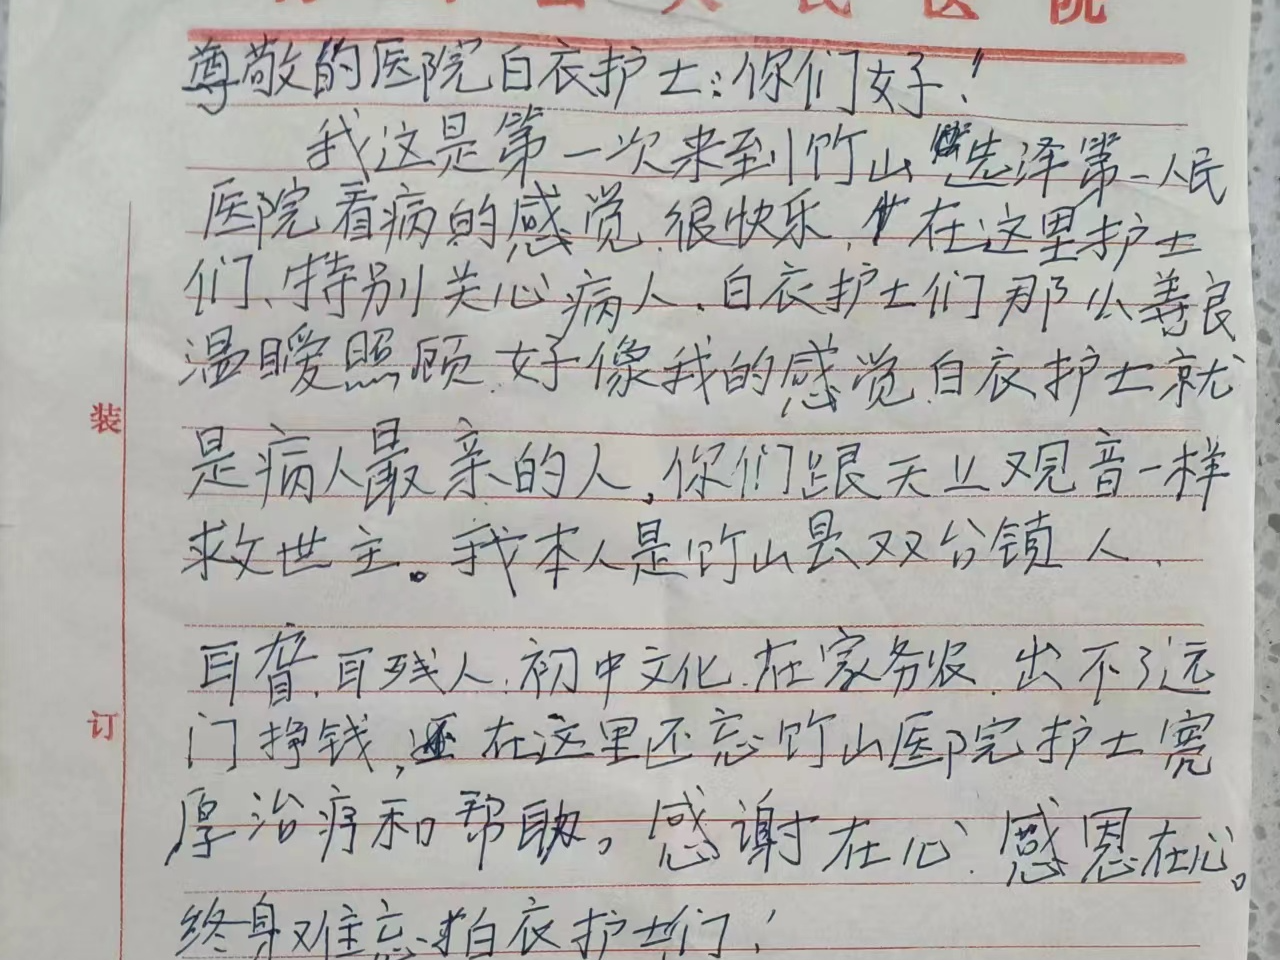 人民医院
尊敬的医院白衣护士:你们好!
我这是第一次来到竹山选泽第一人民
医院看病的感觉.很快乐,在这里护士
们、特别关心病人.白衣护士们那么善良
温暖照顾.好像我的感觉.白衣护士就
是病人最亲的人,你们跟天上观音一样
救世主。我本人是竹山县双台镇人.
耳聋.耳残人.初中文化.在家务农.出不了远
门挣钱,在这里还忘竹山医院护士宽
厚治疗和帮助。感谢在心.感恩在心。
终身难忘白衣护士们!
装
订